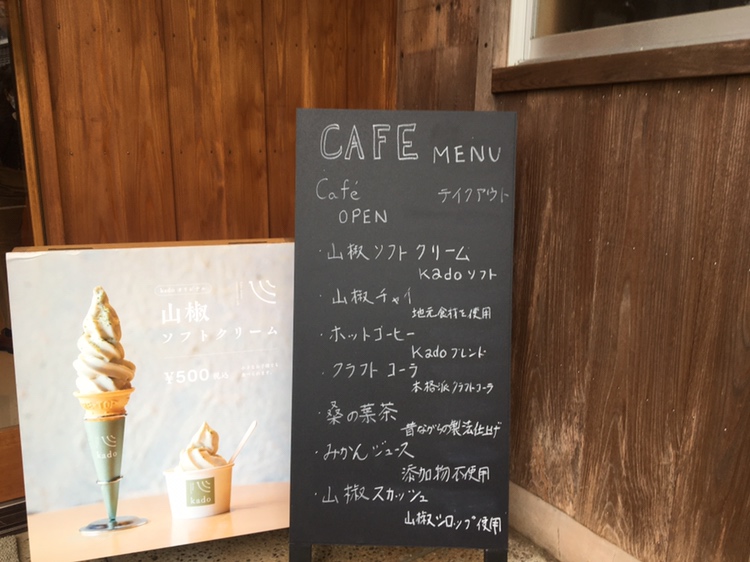 CAFE MENU
Café テイクアウト
OPEN
・山椒ソフトクリーム
Kadoソフト
・山椒チャイ
地元食材を使用
・ホットコーヒー
Kadoブレンド
・クラフトコーラ
本格派クラフトコーラ
・桑の葉茶
昔ながらの製法仕上げ
・みかんジュース
添加物不使用
・山椒スカッシュ
山椒シロップ使用
山椒
ソフトクリーム
¥500
kado
kado